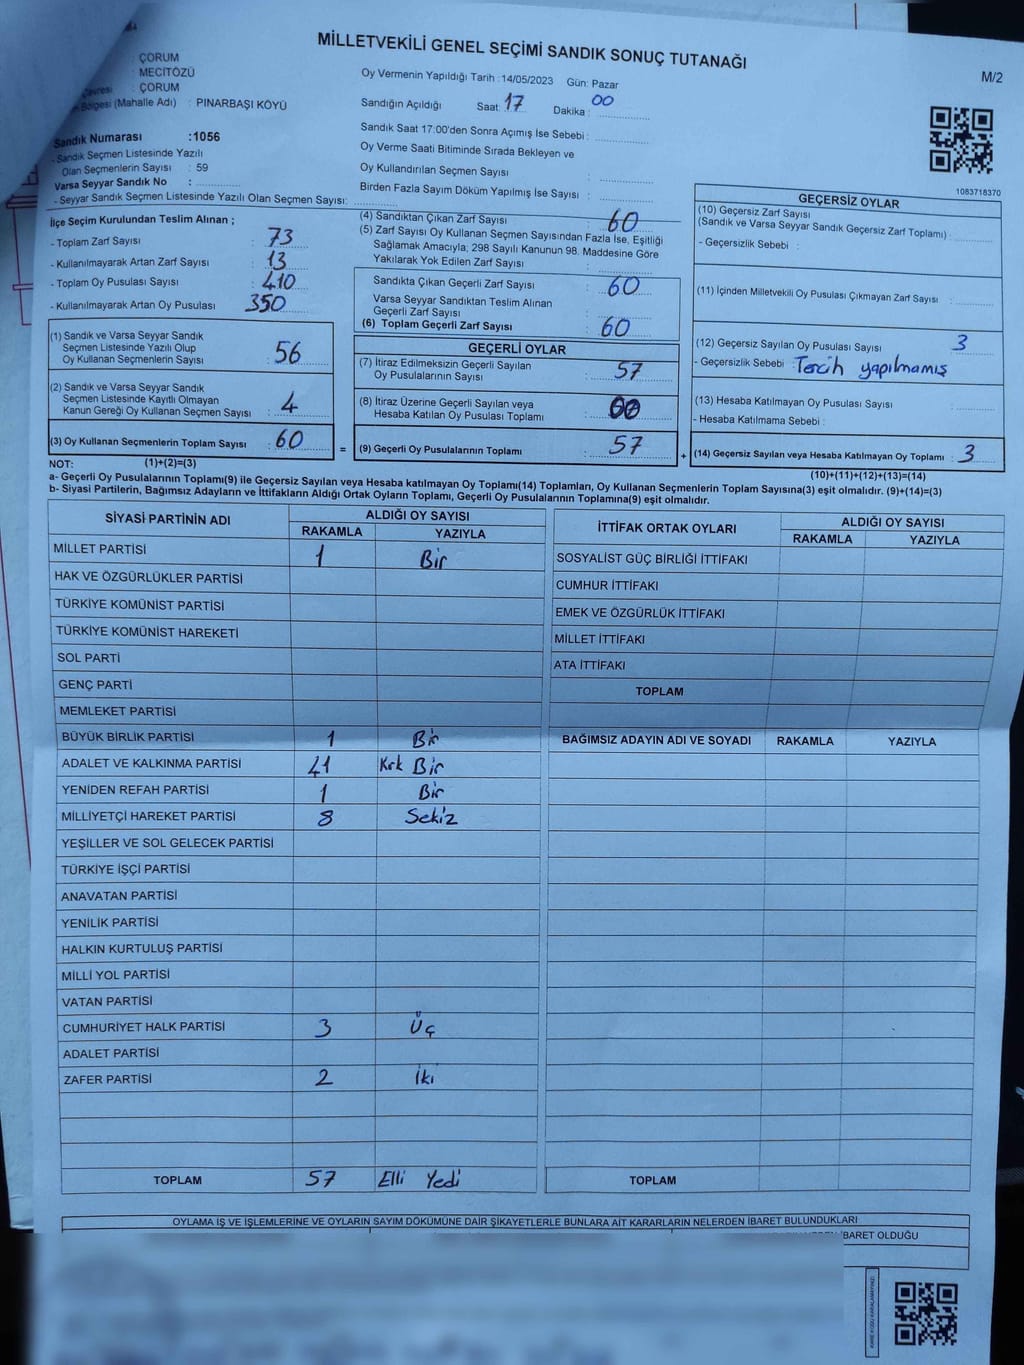 MİLLETVEKİLİ GENEL SEÇİMİ SANDIK SONUÇ TUTANAĞI
M/2
: ÇORUM
: MECİTÖZÜ
: ÇORUM
(Mahalle Adı) : PINARBAŞI KÖYÜ
Oy Vermenin Yapıldığı Tarih : 14/05/2023 Gün: Pazar
Sandığın Açıldığı Saat: 17 Dakika : 00
Sandık Saat 17:00'den Sonra Açımış İse Sebebi :
Oy Verme Saati Bitiminde Sırada Bekleyen ve
Oy Kullandırılan Seçmen Sayısı :
Birden Fazla Sayım Döküm Yapılmış İse Sayısı :
Sandık Numarası :1056
- Sandık Seçmen Listesinde Yazılı
Olan Seçmenlerin Sayısı : 59
Varsa Seyyar Sandık No :
- Seyyar Sandık Seçmen Listesinde Yazılı Olan Seçmen Sayısı:
1083718370
İlçe Seçim Kurulundan Teslim Alınan ;
- Toplam Zarf Sayısı : 73
- Kullanılmayarak Artan Zarf Sayısı : 13
- Toplam Oy Pusulası Sayısı : 410
- Kullanılmayarak Artan Oy Pusulası : 350
(1) Sandık ve Varsa Seyyar Sandık
Seçmen Listesinde Yazılı Olup
Oy Kullanan Seçmenlerin Sayısı : 56
(2) Sandık ve Varsa Seyyar Sandık
Seçmen Listesinde Kayıtlı Olmayan
Kanun Gereği Oy Kullanan Seçmen Sayısı : 4
(3) Oy Kullanan Seçmenlerin Toplam Sayısı : 60
(4) Sandıktan Çıkan Zarf Sayısı : 60
(5) Zarf Sayısı Oy Kullanan Seçmen Sayısından Fazla İse, Eşitliği
Sağlamak Amacıyla; 298 Sayılı Kanunun 98. Maddesine Göre
Yakılarak Yok Edilen Zarf Sayısı :
Sandıkta Çıkan Geçerli Zarf Sayısı : 60
Varsa Seyyar Sandıktan Teslim Alınan
Geçerli Zarf Sayısı :
(6) Toplam Geçerli Zarf Sayısı : 60
GEÇERLİ OYLAR
(7) İtiraz Edilmeksizin Geçerli Sayılan
Oy Pusulalarının Sayısı : 57
(8) İtiraz Üzerine Geçerli Sayılan veya
Hesaba Katılan Oy Pusulası Toplamı :
= (9) Geçerli Oy Pusulalarının Toplamı : 57
GEÇERSİZ OYLAR
(10) Geçersiz Zarf Sayısı
(Sandık ve Varsa Seyyar Sandık Geçersiz Zarf Toplamı) :
- Geçersizlik Sebebi :
(11) İçinden Milletvekili Oy Pusulası Çıkmayan Zarf Sayısı :
(12) Geçersiz Sayılan Oy Pusulası Sayısı : 3
- Geçersizlik Sebebi : Tercih yapılmamış
(13) Hesaba Katılmayan Oy Pusulası Sayısı :
- Hesaba Katılmama Sebebi :
+ (14) Geçersiz Sayılan veya Hesaba Katılmayan Oy Toplamı : 3
NOT: (1)+(2)=(3) (10)+(11)+(12)+(13)=(14)
a- Geçerli Oy Pusulalarının Toplamı(9) ile Geçersiz Sayılan veya Hesaba katılmayan Oy Toplamı(14) Toplamları, Oy Kullanan Seçmenlerin Toplam Sayısına(3) eşit olmalıdır. (9)+(14)=(3)
b- Siyasi Partilerin, Bağımsız Adayların ve İttifakların Aldığı Ortak Oyların Toplamı, Geçerli Oy Pusulalarının Toplamına(9) eşit olmalıdır.
SİYASİ PARTİNİN ADI ALDIĞI OY SAYISI
RAKAMLA YAZIYLA
MİLLET PARTİSİ 1 Bir
HAK VE ÖZGÜRLÜKLER PARTİSİ
TÜRKİYE KOMÜNİST PARTİSİ
TÜRKİYE KOMÜNİST HAREKETİ
SOL PARTİ
GENÇ PARTİ
MEMLEKET PARTİSİ
BÜYÜK BİRLİK PARTİSİ 1 Bir
ADALET VE KALKINMA PARTİSİ 41 Kırk Bir
YENİDEN REFAH PARTİSİ 1 Bir
MİLLİYETÇİ HAREKET PARTİSİ 8 Sekiz
YEŞİLLER VE SOL GELECEK PARTİSİ
TÜRKİYE İŞÇİ PARTİSİ
ANAVATAN PARTİSİ
YENİLİK PARTİSİ
HALKIN KURTULUŞ PARTİSİ
MİLLİ YOL PARTİSİ
VATAN PARTİSİ
CUMHURİYET HALK PARTİSİ 3 Üç
ADALET PARTİSİ
ZAFER PARTİSİ 2 İki
TOPLAM 57 Elli Yedi
İTTİFAK ORTAK OYLARI ALDIĞI OY SAYISI
RAKAMLA YAZIYLA
SOSYALİST GÜÇ BİRLİĞİ İTTİFAKI
CUMHUR İTTİFAKI
EMEK VE ÖZGÜRLÜK İTTİFAKI
MİLLET İTTİFAKI
ATA İTTİFAKI
TOPLAM
BAĞIMSIZ ADAYIN ADI VE SOYADI RAKAMLA YAZIYLA
TOPLAM
OYLAMA İŞ VE İŞLEMLERİNE VE OYLARIN SAYIM DÖKÜMÜNE DAİR ŞİKAYETLERLE BUNLARA AİT KARARLARIN NELERDEN İBARET BULUNDUKLARI
İBARET OLDUĞU